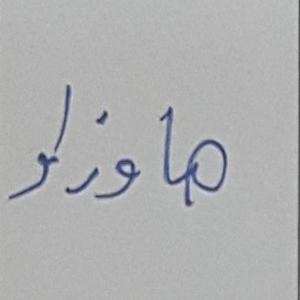 هاوزلو